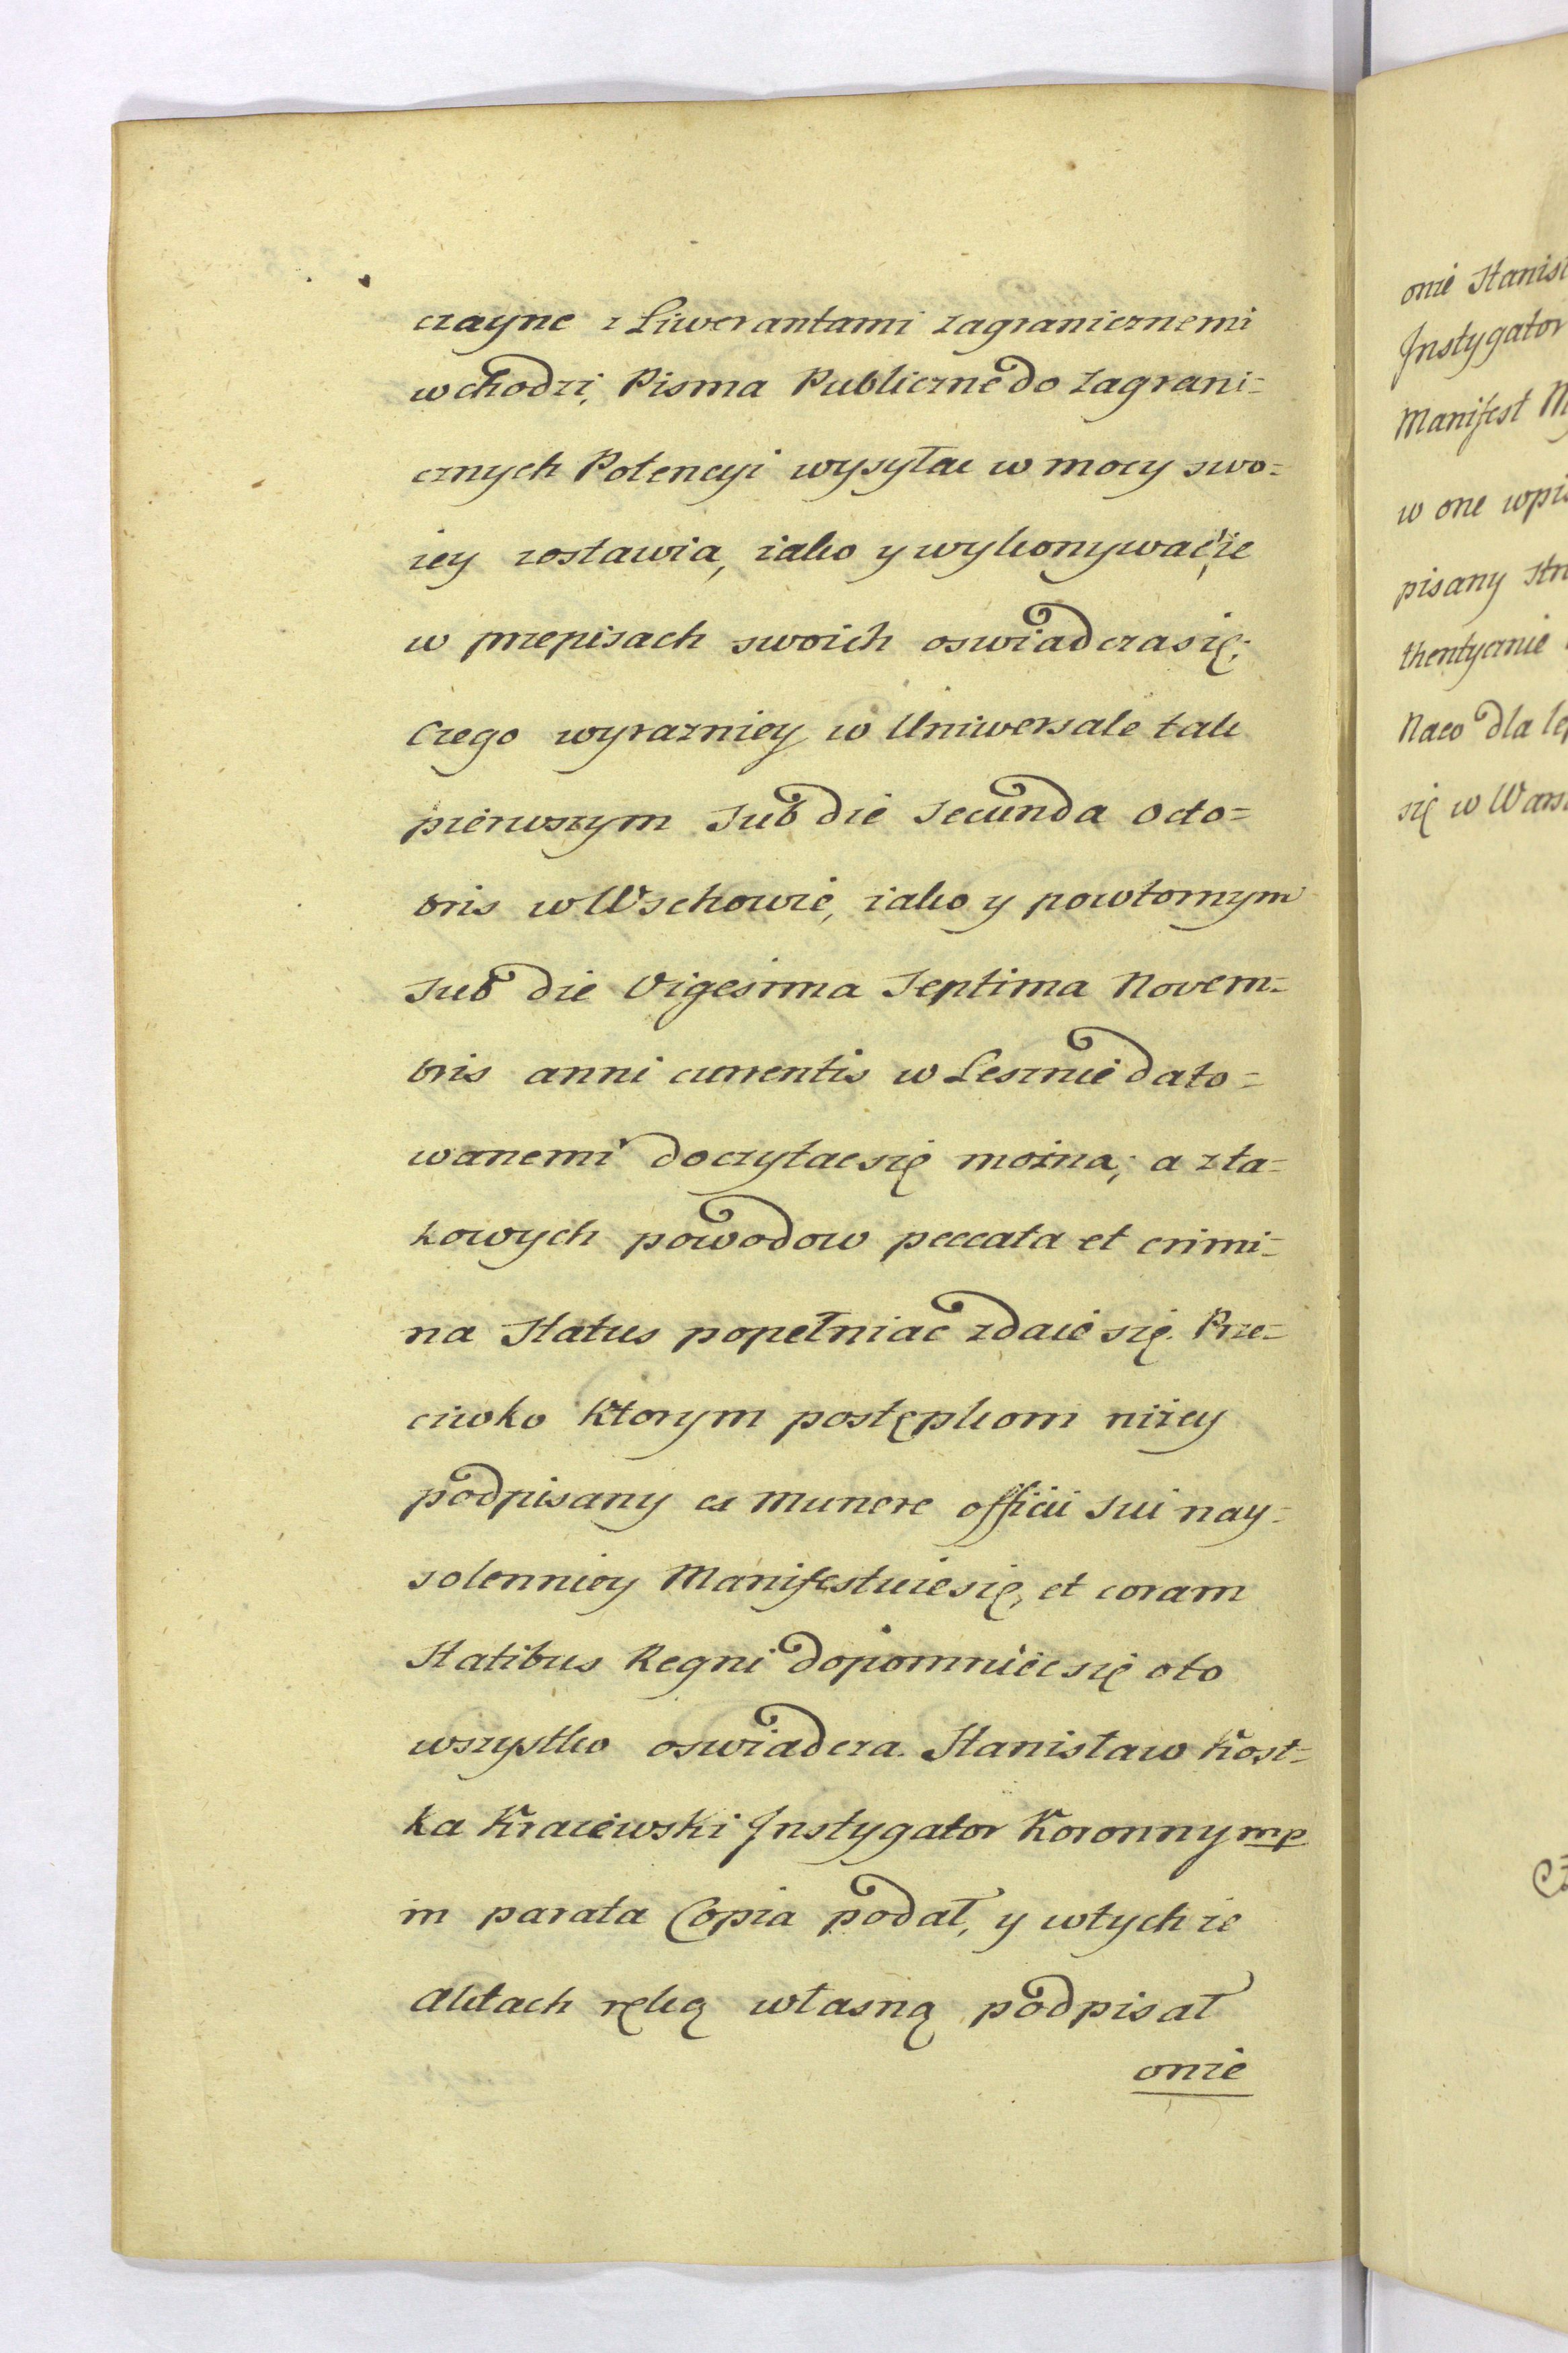 czayne z Liwerantami zagranicznemi
wchodzi, Pisma Publiczne do zagrani=
cznych Potencyi wysyłac w mocy swo=
iey zostawia, iako y wykonywać ie
w przepisach swoich oswiadcza się;
Czego wyrazniey w Uniwersale tak
pierwszym Sub die Secunda Octo=
bris w Wschowie, iako y powtornym
Sub die Vigesima Septima Novem=
bris anni currentis w Lesznie dato=
wanemi doczytac się można; a z ta=
kowych powodow peccata et crimi=
na Status popełniac zdaie się. Prze=
ciwko ktorym postępkom niżey
podpisany ex Munere officii Sui nay=
solenniey Manifestuie się, et coram
Statibus Regni dopomniec się oto
wszystko oswiadcza. Stanisław Kost=
ka Kraiewski Instygator Koronny mp
in parata Copia podał, y w tych ze
aktach ręką własną podpisał
onże
onże Stanis
Instygator
Manifest M
w one wpis
pisany
thentycznie
Naco dla lep
się w Wars